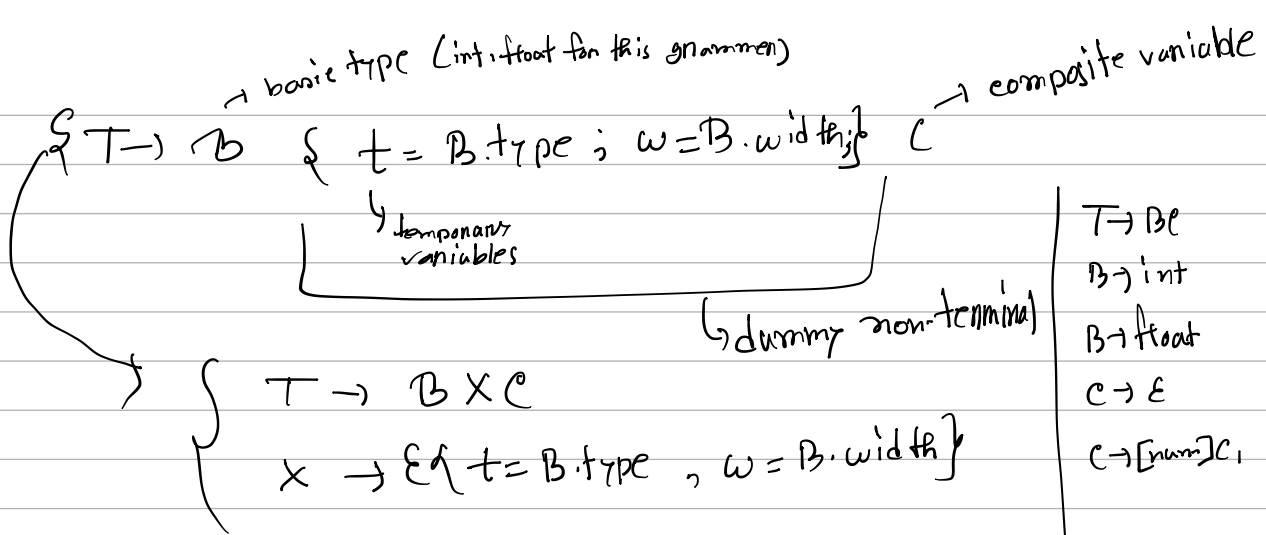 → basic type (int, float for this grammer)
→ composite variable
{ T → B { t = B.type ; w = B.width; } C
↳ temporary
variables
↳ dummy non-terminal
T → B X C
X → ε { t = B.type , w = B.width }
T → BC
B → int
B → float
C → ε
C → [num] C₁